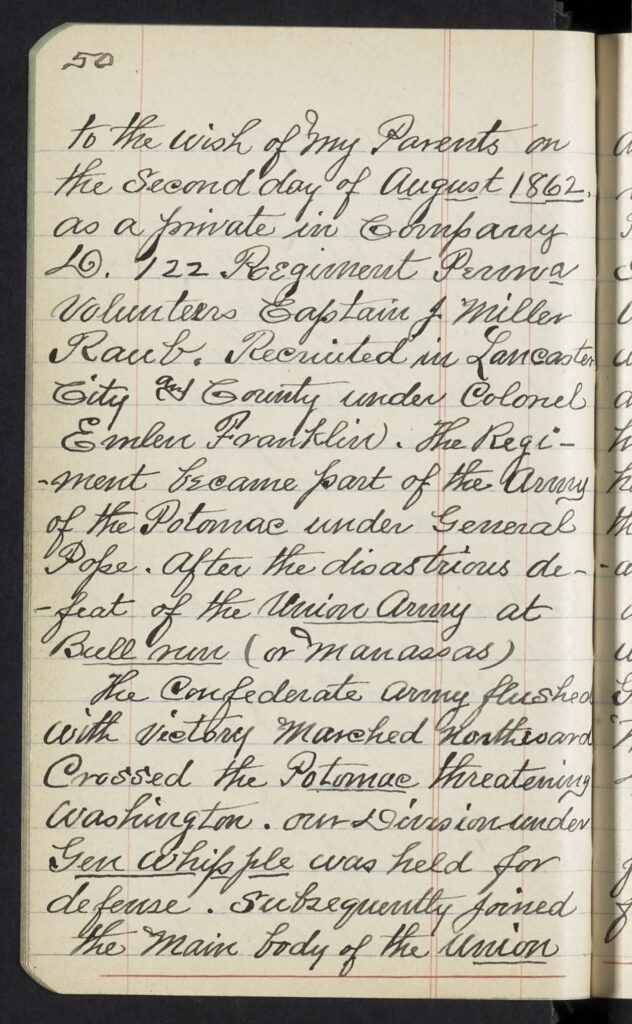 50
to the wish of my Parents on
the Second day of August 1862.
as a private in Company
D. 122 Regiment Penna
Volunteers Captain J Miller
Raub. Recruited in Lancaster
City and County under Colonel
Emlen Franklin. The Regi-
-ment became part of the Army
of the Potomac under General
Pope. After the disastrious de-
-feat of the Union Army at
Bull run (or Manassas)
The Confederate Army flushed
with victory Marched northward
Crossed the Potomac threatening
Washington. our Division under
Gen Whipple was held for
defense. Subsequently joined
the Main body of the Union